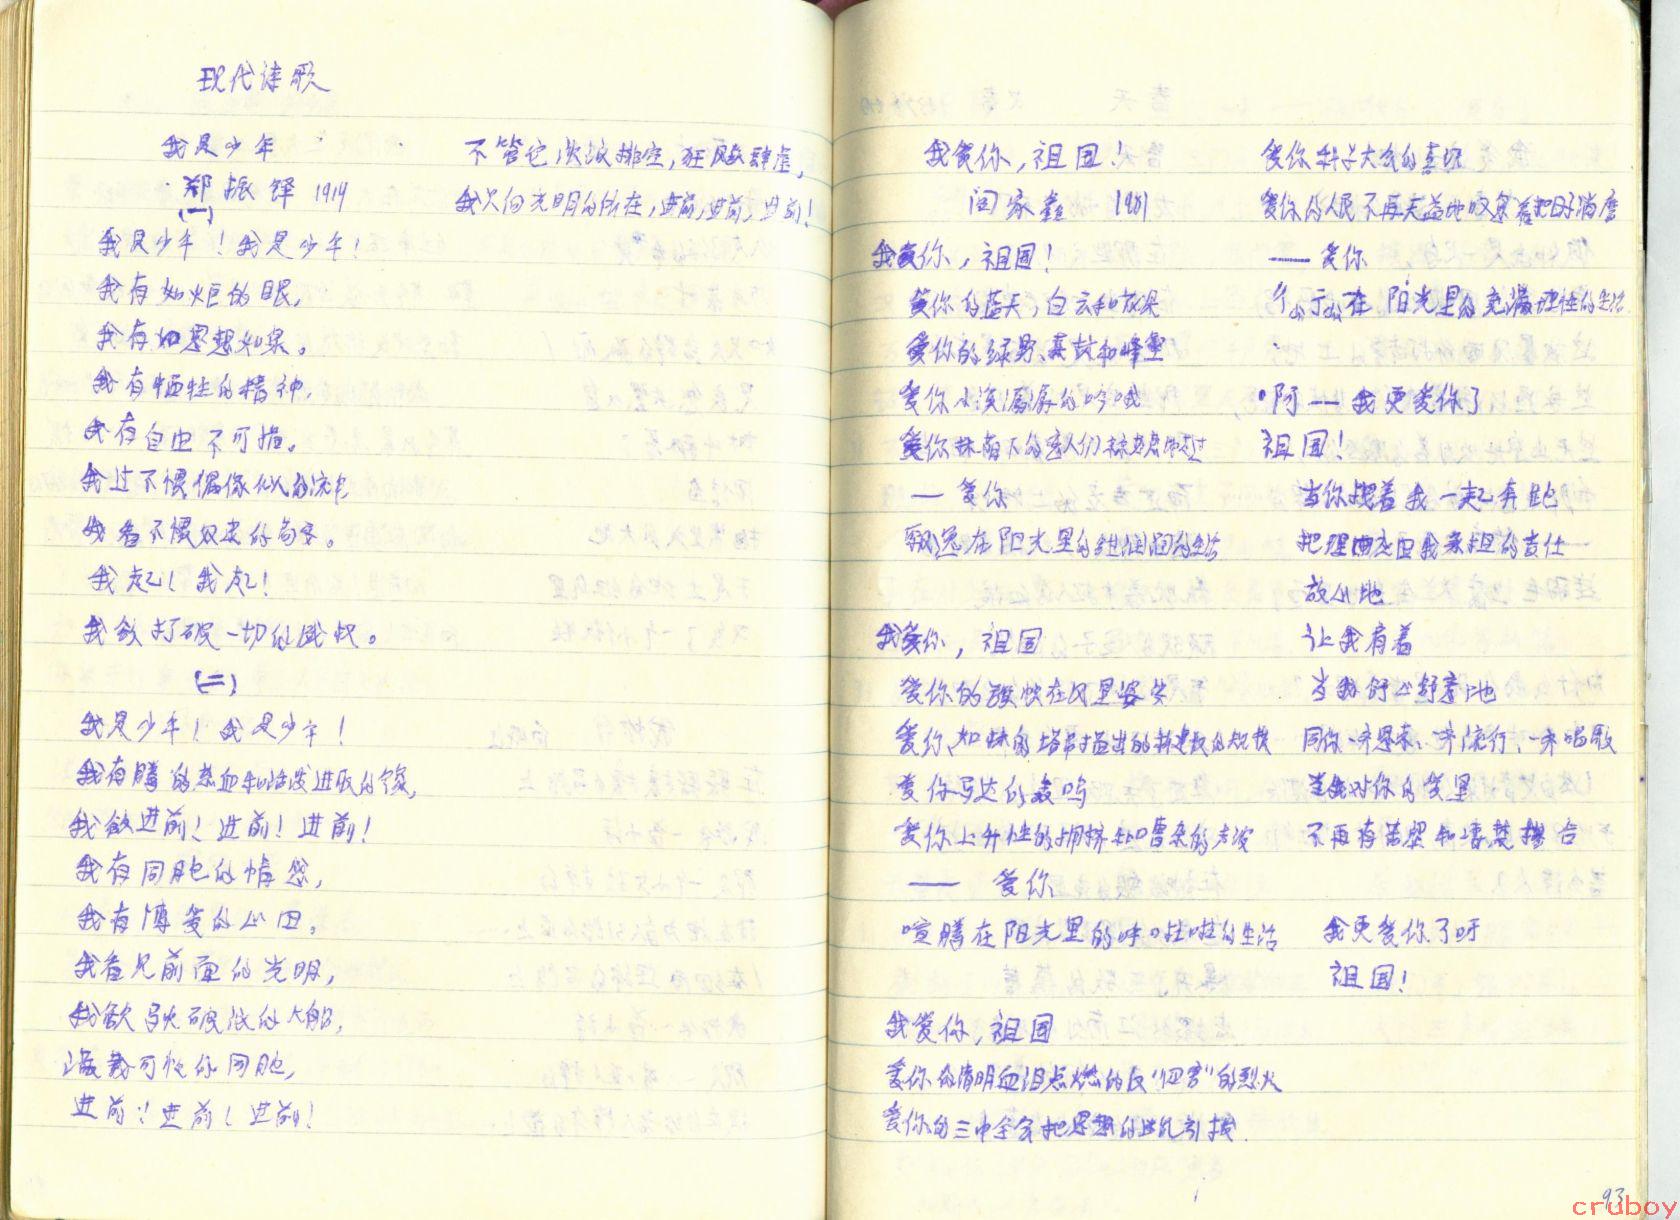 现代诗歌
我是少年
郑振铎 1919
(一)
我是少年！我是少年！
我有如炬的眼，
我有如思想如泉。
我有牺牲的精神，
我有自由不可捐。
我过不惯偶像似的流年
我看不惯奴隶的苟安。
我起！我起！
我欲打破一切的威权。
(二)
我是少年！我是少年！
我有腾的热血和活泼进取的气象，
我欲进前！进前！进前！
我有同胞的情感，
我有博爱的心田。
我看见前面的光明，
我欲驶破浪的大船，
满载可怜的同胞，
进前！进前！进前！
不管它浊浪排空，狂飚肆虐，
我只向光明的所在，进前，进前，进前！
我爱你，祖国！
1981
我爱你，祖国！
爱你的蓝天，白云和放朵
爱你的绿野、森林和峰峦
爱你小溪潺潺的吟哦
爱你林荫下的恋人们
— 爱你
飘逸在阳光里的甜润润的生活
我爱你，祖国
爱你的旗帜在风里婆娑
爱你如林的塔吊描出的新建设的规模
爱你马达的轰鸣
爱你上升性的拥挤和嘈杂的声波
— 爱你
喧腾在阳光里的呼啦啦的生活
我爱你，祖国
爱你的清明血泪点燃的反“四害”的烈火
爱你的三中全会把思想的引擎
爱你科学大会的
爱你的人民不再无益地叹息着把日子消磨
— 爱你
在阳光里的充满理性的生活
啊 — 我更爱你了
祖国！
当你携着我一起奔跑
把理当应由我承担的责任—
放心地
让我肩着
当我舒心舒意地
同你一齐思索、一齐流行、一齐唱歌
当我对你的爱里
不再有苦涩和凄楚揉合
我更爱你了呀
祖国！
93
cruboy